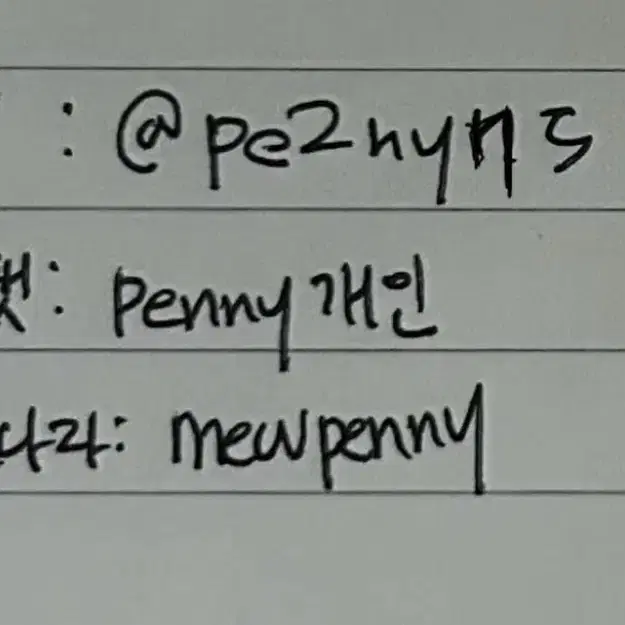 : @pe2nyηs
: penny개인
: mewpenny